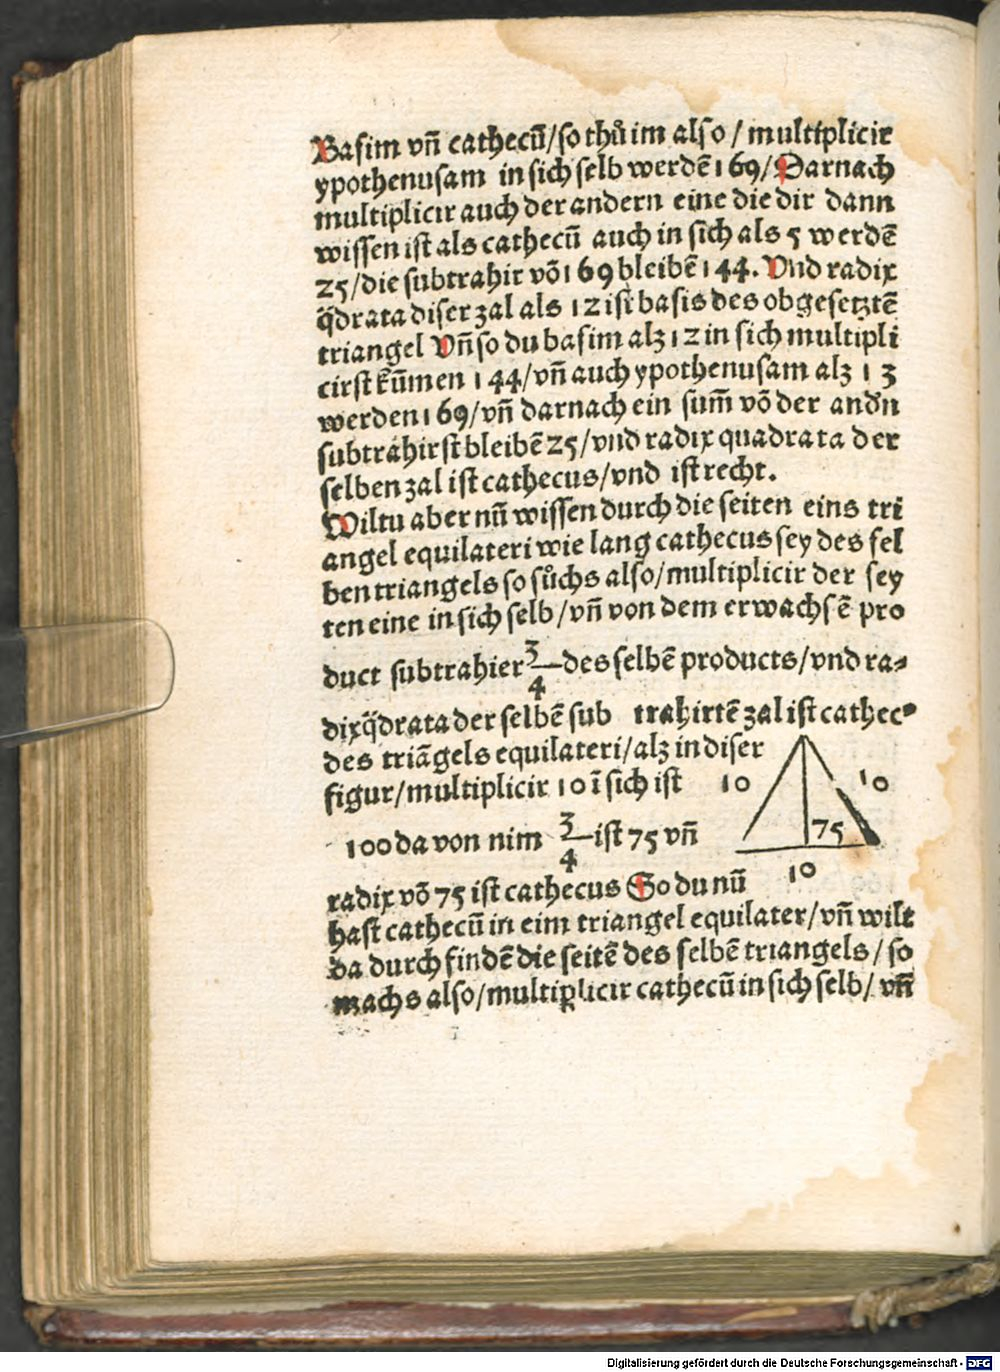 Basim vñ cathecū/so thůim also / multiplicir
ypothenusam in sich selb werdē 169/Darnach
multiplicir auch der andern eine die dir dann
wissen ist als cathecū auch in sich als 5 werdē
25/die subtrahir võ 169 bleibē 144. Vnd radix
q̈drata diser zal als 12 ist basis des obgesetztē
triangel Vñ so du basim alz 12 in sich multipli
cirst kūmen 144/vñ auch ypothenusam alz 13
werden 169/vñ darnach ein sum̄ võ der andn̄
subtrahirst bleibē 25/vnd radix quadrata der
selben zal ist cathecus/vnd ist recht.
Wiltu aber nū wissen durch die seiten eins tri
angel equilateri wie lang cathecus sey des sel
ben triangels so sůchs also/multiplicir der sey
ten eine in sich selb/vñ von dem erwachsē pro
duct subtrahier 3/4 des selbē products/vnd ra⸗
dix q̈drata der selbē sub trahirtē zal ist cathec⁹
des triãgels equilateri/alz in diser
figur/multiplicir 10 ī sich ist
10 10
100 da von nim 3/4 ist 75 vñ
75
10
radix võ 75 ist cathecus So du nū
hast cathecū in eim triangel equilater/vñ wilt
da durch findē die seitē des selbē triangels/so
machs also/multiplicir cathecū in sich selb/vñ
Digitalisierung gefördert durch die Deutsche Forschungsgemeinschaft - DFG